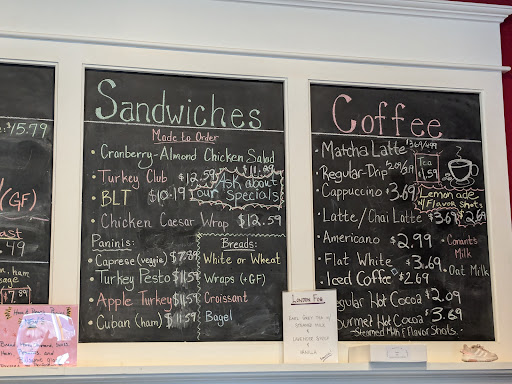 $15.79
(GF)
.49
ham,
$7.89
Sandwiches
Made to Order
• Cranberry-Almond Chicken Salad
$11.89
• Turkey Club $12.59
• BLT $10.19
Ask about
our Specials
• Chicken Caesar Wrap $12.59
Paninis:
Caprese (veggie) $7.89
Turkey Pesto $11.59
• Apple Turkey $11.59
• Cuban (ham) $11.59
Breads:
White or Wheat
Wraps (+GF)
Croissant
Bagel
Coffee
• Matcha Latte $3.69/4.99
• Regular-Drip
Tea
$1.59
• Cappucino $3.69
Lemonade
+ Flavor Shots
$2.69
• Latte/Chai Latte $3.69
• Americano $2.99
• Flat White $3.69
• Iced Coffee $2.69
Regular Hot Cocoa $2.09
Gourmet Hot Cocoa $3.69
Steamed Milk & Flavor Shots.
• Conants
Milk
• Oat Milk
London Fog
Earl Grey Tea w/
Steamed Milk
&
Lavender Syrup
&
Vanilla